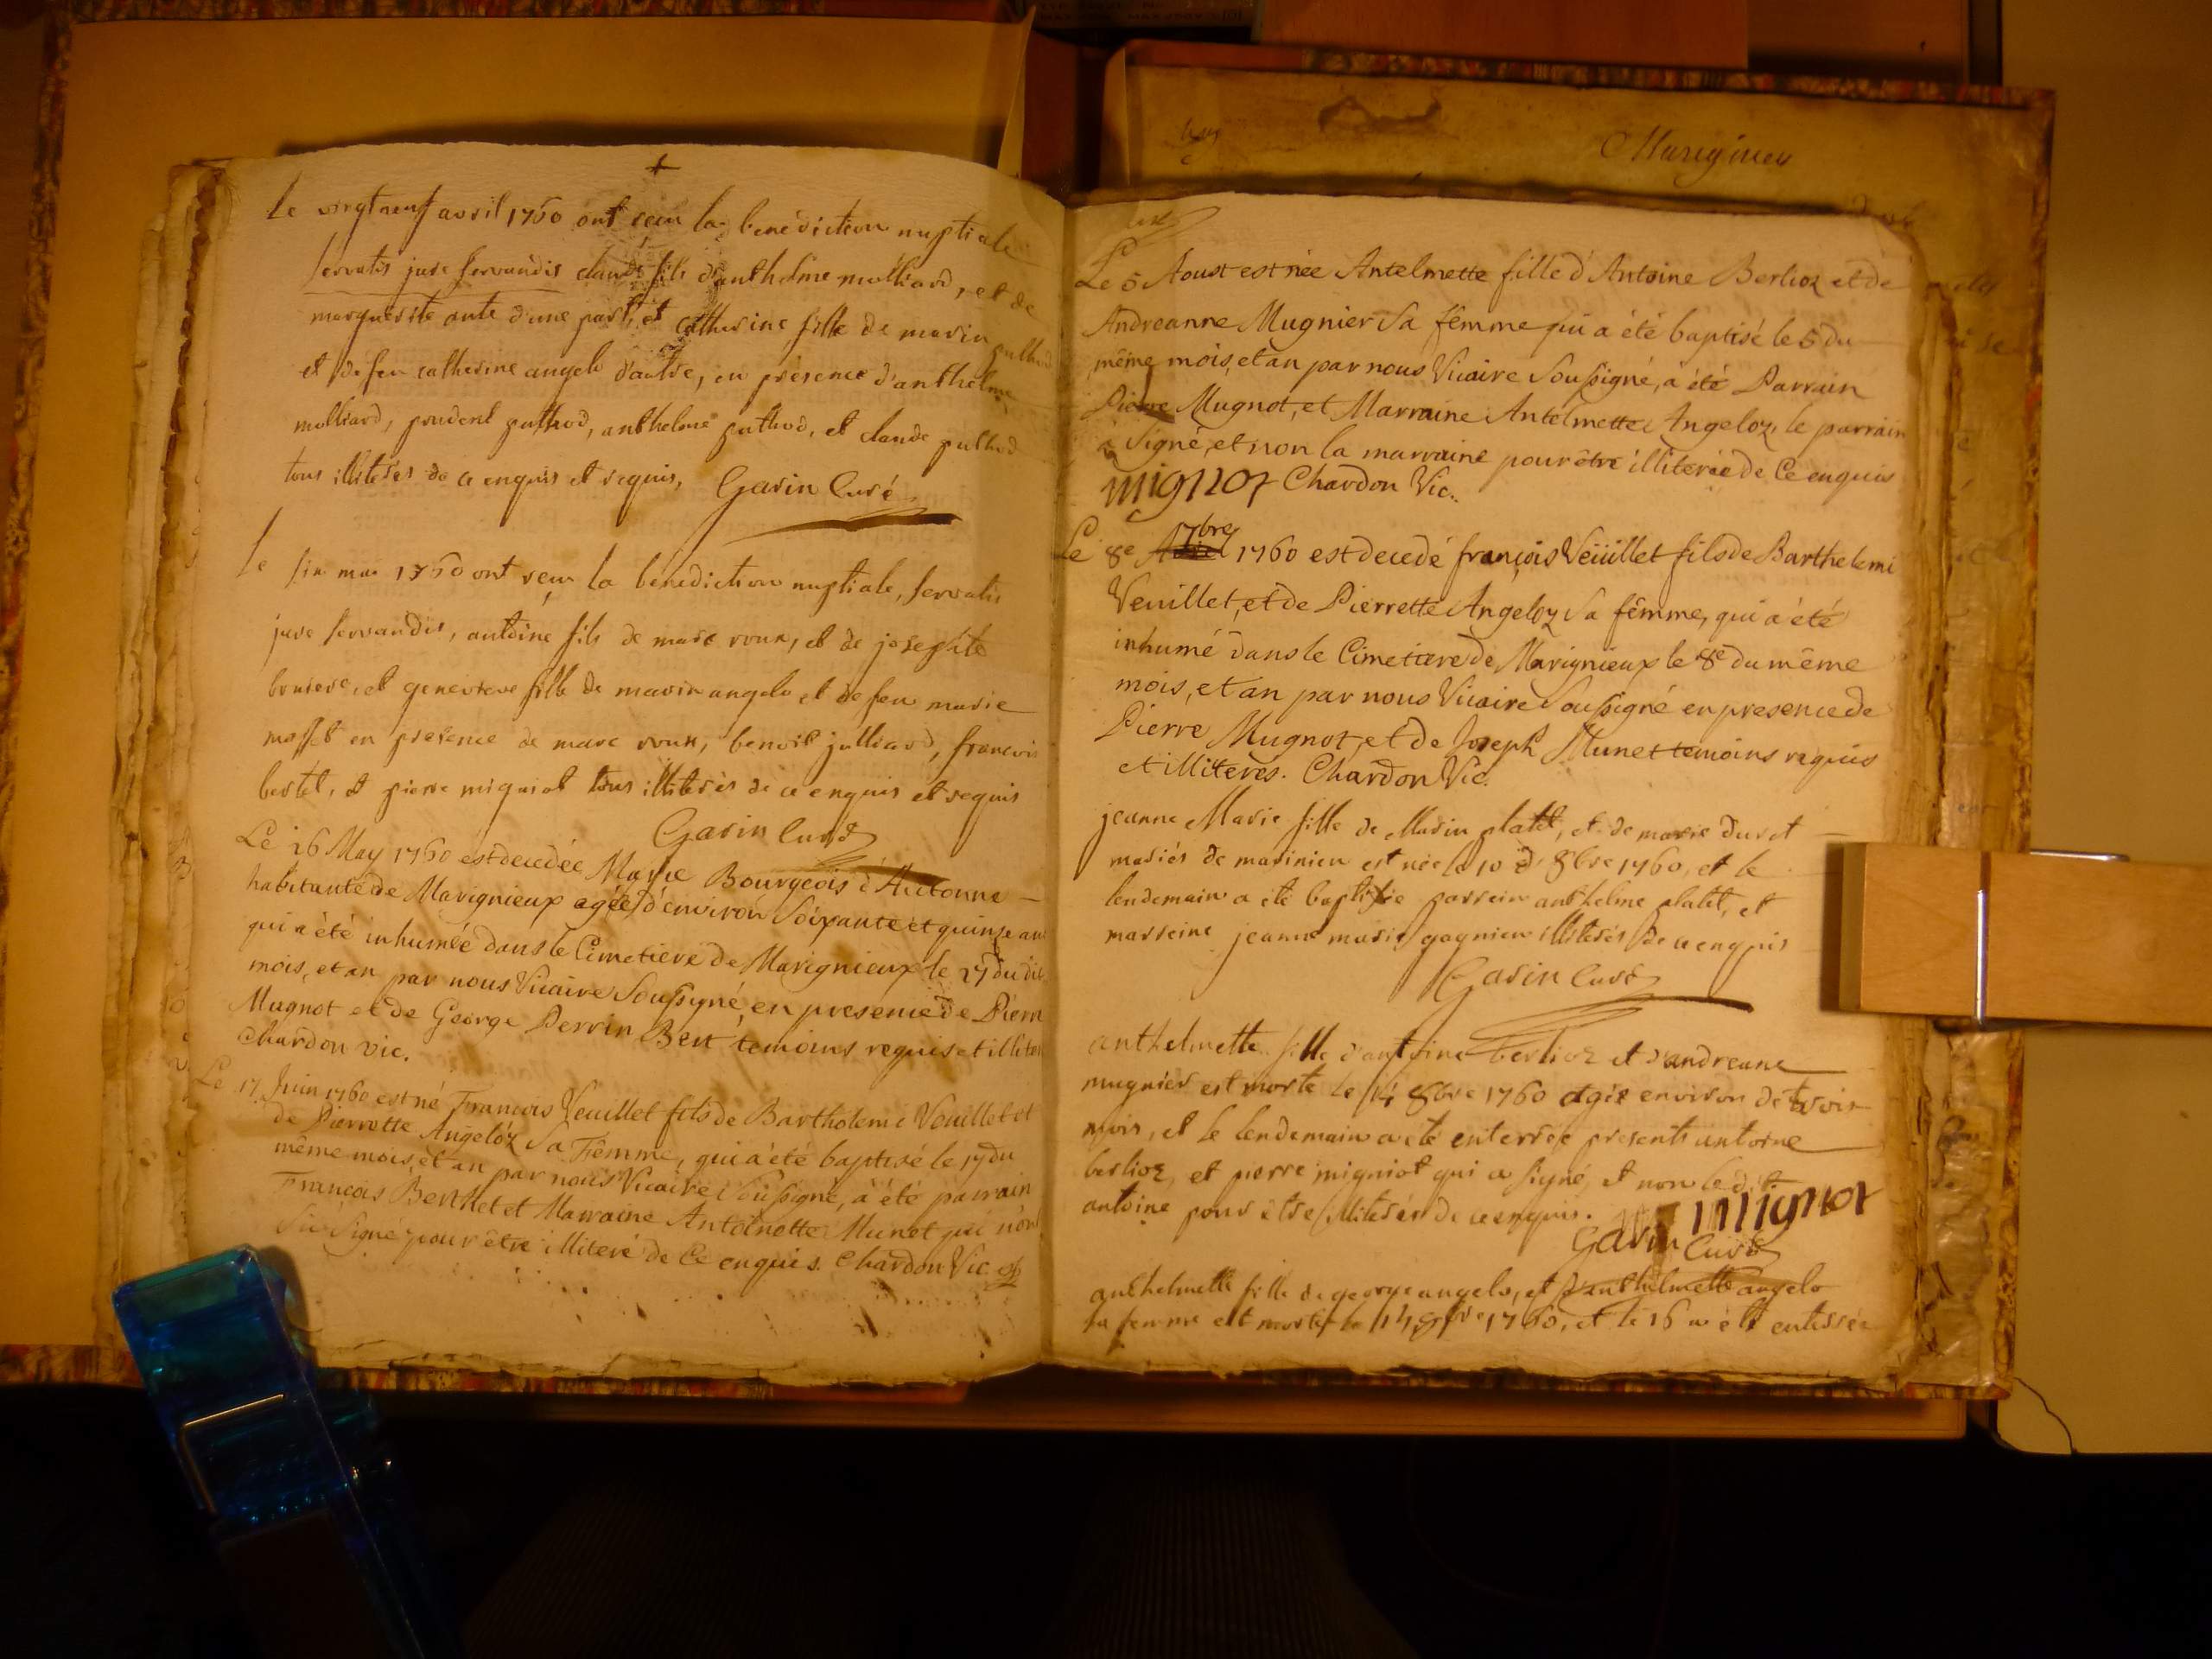 Le vingt neuf avril 1760 ont reçu la benediction nuptiale
servatis jure servandis claude fils d'anthelme molliard, et de
marguerite ante d'une part, et catherine fille de marin puthod
et de feu catherine angelo d'autre, en présence d'anthelme
molliard, prudent puthod, anthelme puthod, et claude puthod
tous illiterés de ce enquis et requis, Gavin Curé
le six mai 1760 ont reçu la benediction nuptiale, servatis
jure servandis, antoine fils de marc roux, et de josephte
bruiere, et genevieve fille de marin angelo et de feu marie
masset en presence de marc roux, benoit julliard, francois
bertet, et pierre migniot tous illiterés de ce enquis et requis
Gavin Curé
Le 26 May 1760 est decedée Marie Bourgeois d'Antonne
habitante de Marignieux agée d'environ Soixante et quinze an
qui a été inhumée dans le Cimetiere de Marignieux le 27 du dit
mois, et an par nous Vicaire Soussigné, en presence de Pierre
Mugnot et de George Perrin Bert temoins requis et illiter
Chardon vic.
Le 17 Juin 1760 est né Francois Veuillet fils de Bartholemi Veuillet et
de Pierrotte Angeloz Sa Femme, qui a été baptisé le 17 du
même mois, et an par nous Vicaire Soussigné, a été parrain
Francois Berthet et Marraine Antoinette Munet qui n'ont
Signé pour être illiteré de Ce enquis. Chardon Vic.
Marignieu
Le 5 Aoust est née Antelmette fille d'Antoine Berlioz et de
Andreanne Mugnier Sa fêmme qui a été baptisé le 5 du
même mois, et an par nous Vicaire Soussigné, a été Parrain
Pierre Mugnot, et Marraine Antelmette Angeloz, le parrain
a Signé, et non la marraine pour être illiterée de Ce enquis
mignoz Chardon Vic.
Le 8e 7bre 1760 est decedé françois Veüillet fils de Barthelemi
Veuillet, et de Pierrette Angeloz Sa fêmme, qui a été
inhumé dans le Cimetiere de Marignieux le 8e du même
mois, et an par nous Vicaire Soussigné en presence de
Pierre Mugnot, et de Joseph Munet temoins requis
et illiterés. Chardon Vic.
jeanne Marie fille de Marin platet, et de marie duret
mariés de marinieu est née le 10 d' 8bre 1760, et le
lendemain a été baptisée parrein anthelme platet, et
marreine jeanne marie gagnieu illiterés de ce enquis
Gavin Curé
anthelmette fille d'antoine berlioz et d'andreane
mugnier est morte le 14 8bre 1760 agée environ de trois
mois, et le lendemain a été enterrée presents antoine
berlioz, et pierre migniot qui a signé, et non le dit
antoine pour être illiterés de ce enquis. mignot
Gavin Curé
anthelmette fille de george angelo, et d'anthelmette angelo
sa femme est morte le 14 8bre 1760, et le 16 a été enterrée